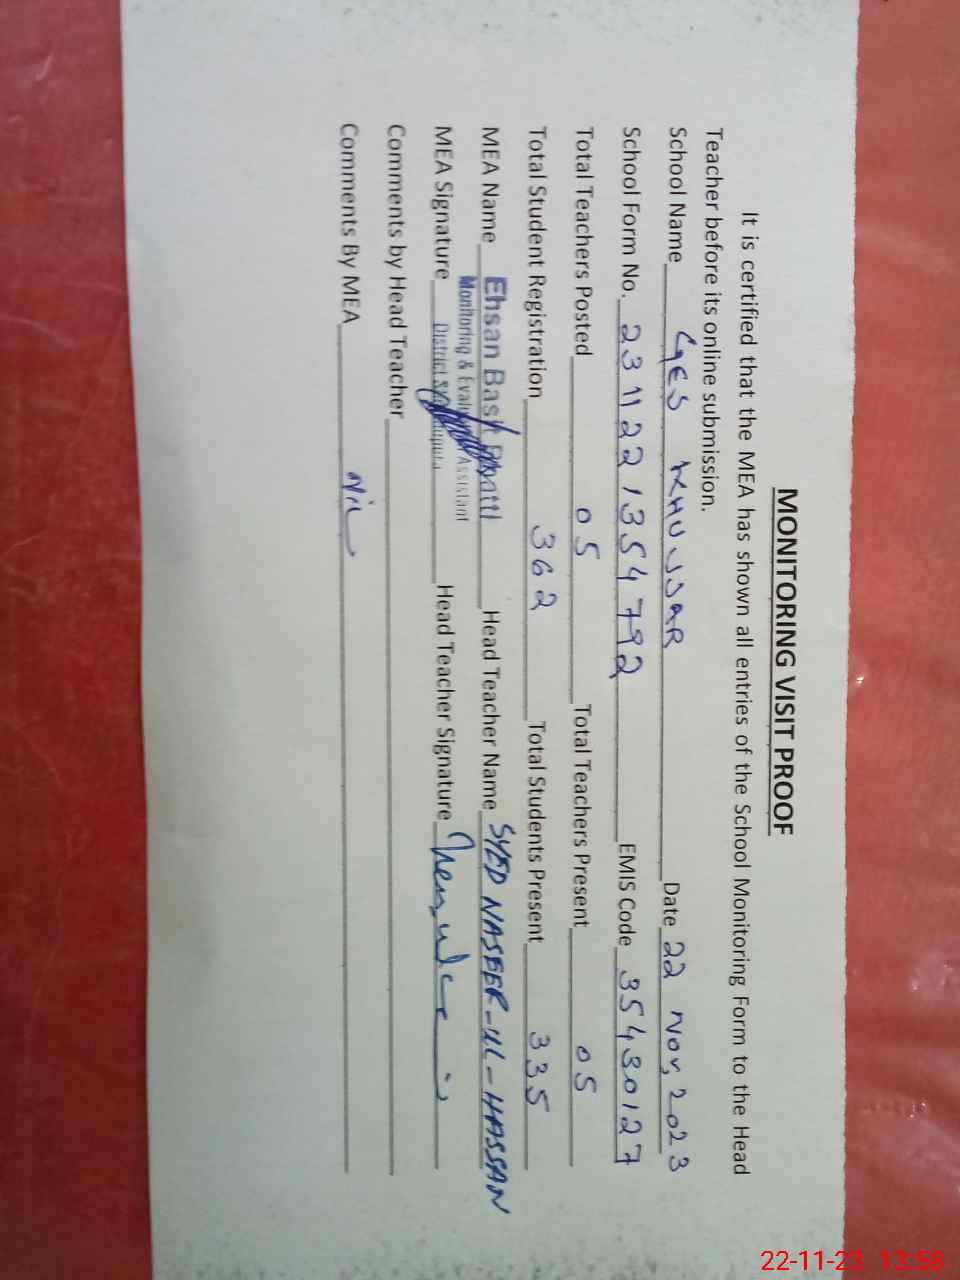 MONITORING VISIT PROOF
It is certified that the MEA has shown all entries of the School Monitoring Form to the Head
Teacher before its online submission.
School Name GES KHUSSAR Date 22 Nov, 2023
School Form No. 2311221354792 EMIS Code 35430127
Total Teachers Posted 05 Total Teachers Present 05
Total Student Registration 362 Total Students Present 335
MEA Name Ehsan Head Teacher Name SYED NASEER-UL-HASSAN
Monitoring & Assistant
MEA Signature District Head Teacher Signature
Comments by Head Teacher
Comments By MEA Nil
22-11-23 13:58